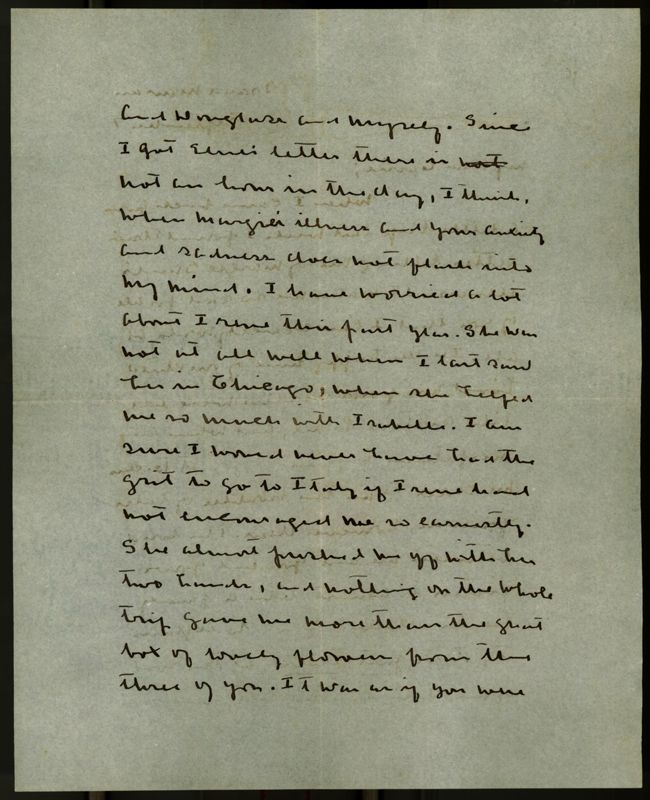 and Douglass and myself. Since
I got Elsie's letter there is not
not an hour in the day, I think,
when Margie's illness and your anxiety
and sadness does not flash into
my mind. I have worried a lot
about Irene this past year. She was
not at all well when I last saw
her in Chicago, when she helped
me so much with Isabelle. I am
sure I would never have had the
grit to go to Italy if Irene had
not encouraged me so earnestly.
She almost pushed me off with her
two hands, and nothing on the whole
trip gave me more than the great
box of lovely flowers from the
three of you. It was as if you were